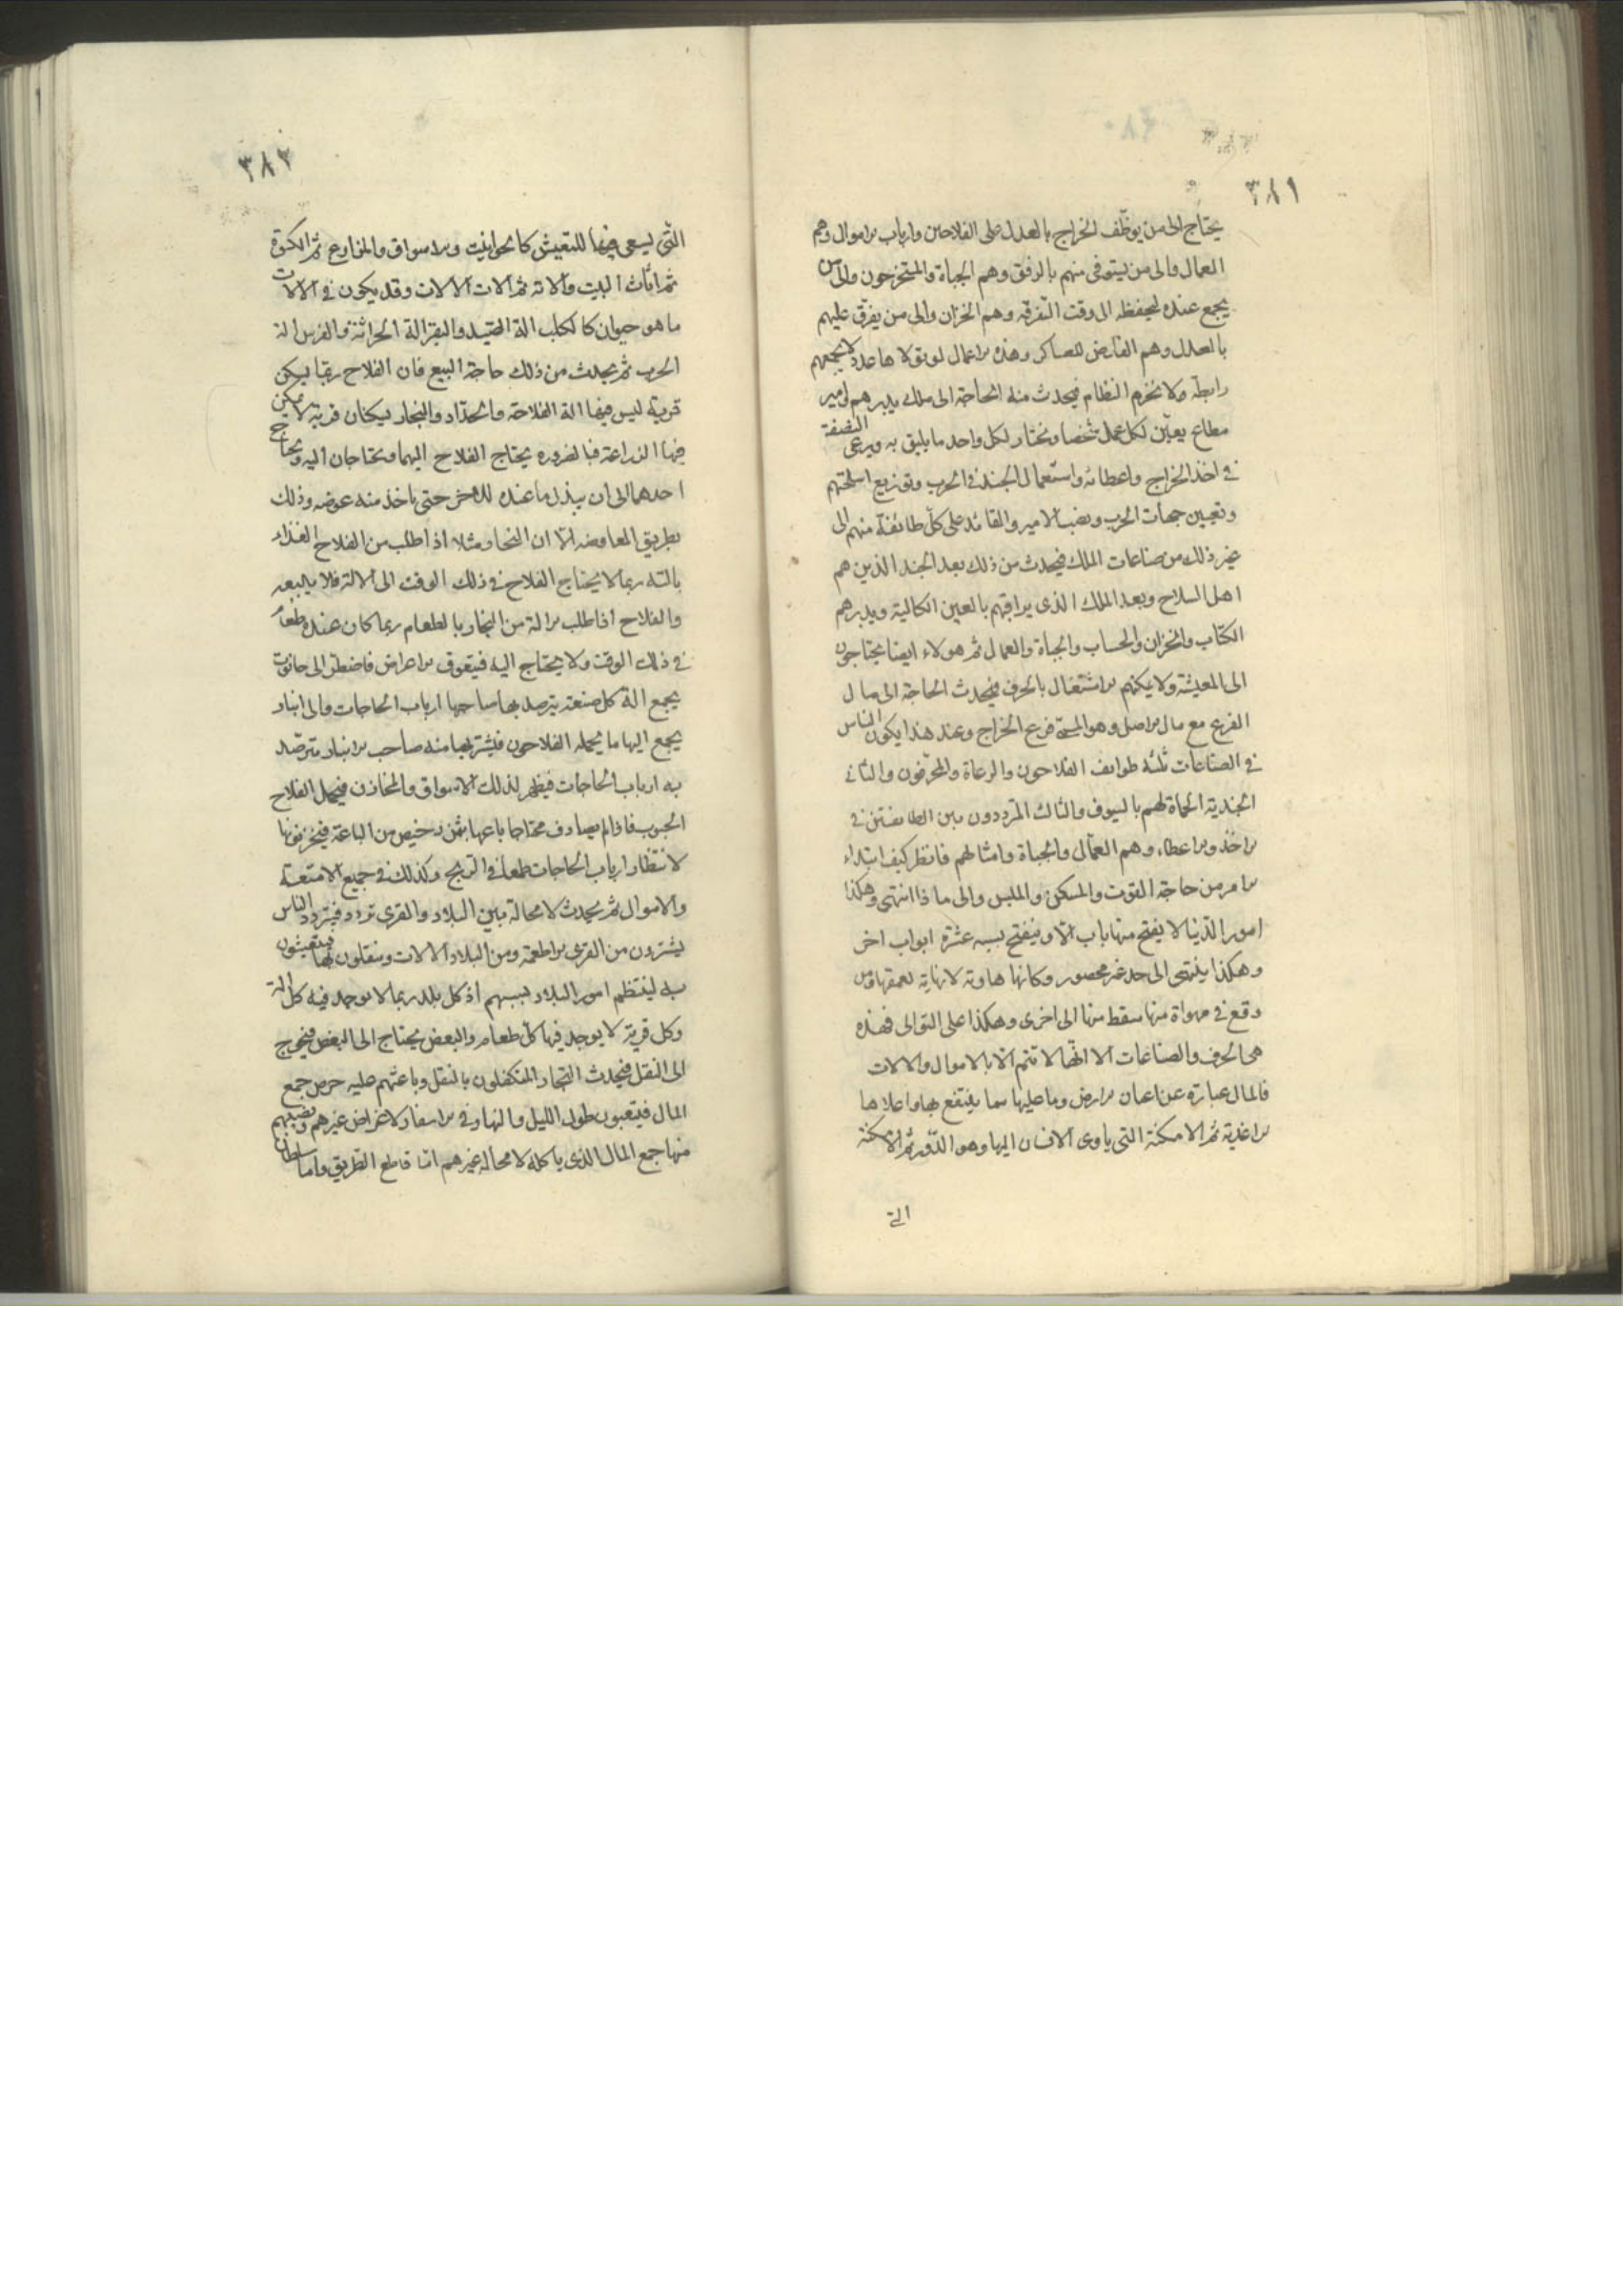 ٣٨١
يحتاج الى من يوظّف الخراج بالعدل على الفلاحين وارباب الاموال وهم
العمال والى من يستوفى منهم بالرفق وهم الجباة والمستخرجون والى من
يجمع عنده ليحفظه الى وقت التفرقه وهم الخزان والى من يفرّق عليهم
بالعدل وهم الفارض للعساكر وهذه الاعمال لو تولاها عدد لا يجمعهم
رابطة ولا انخرم النظام فيحدث منه الحاجة الى ملك يدبرهم وامير
مطاع يعيّن لكل عمل شخصا ويختار لكل واحد ما يليق به ويرعى النصفة
فى اخذ الخراج واعطائه واستعمال الجند فى الحرب وتوزيع اسلحتهم
وتعيين جهات الحرب ونصب الامير والقائد على كلّ طائفة منهم الى
غير ذلك من صناعات الملك فيحدث من ذلك بعد الجند الذين هم
اهل السلاح وبعد الملك الذى يراقبهم بالعين الكالية ويدبرهم
الكتّاب والخزان والحساب والجباة والعمال ثم هولاء ايضا يحتاجون
الى المعيشة ولا يمكنهم الاشتغال بالحرف فيحدث الحاجة الى مال
الفرع مع مال الاصل وهو المسمّى فرع الخراج وعند هذا يكون الناس
فى الصناعات ثلثه طوايف الفلاحون والرعاة والمحترفون والثانى
الجندية الحماة لهم بالسيوف والثالث المترددون بين الطايفتين فى
الاخذ والاعطاء وهم العمّال والجباة وامثالهم فانظر كيف ابتداء
الامر من حاجة القوت والمسكن والملبس والى ما ذا انتهى وهكذا
امور الدّنيا لا يفتح منها باب الّا وينفتح بسببه عشرة ابواب اخر
وهكذا ينتهى الى حد غير محصور وكانها هاوية لا نهاية لعمقها ومن
وقع فى مهواة منها سقط منها الى اخرى وهكذا على التوالى فهذه
هى الحرف والصناعات الا انّها لا تتم الّا بالاموال والالات
فالمال عبارة عن اعيان الارض وما عليها مما ينتفع بها واعلاها
الاغذية ثم الامكنة التى ياوى الانسان اليها وهو الدّور ثم الامكنة
التى
٣٨٢
التّى يسعى فيها للتعيش كالحوانيت والاسواق والمزارع ثم الكسوة
ثم اثاث البيت والاته ثم الات الالات وقد يكون فى الالات
ما هو حيوان كالكلب الة الصّيد والبقر الة الحراثة والفرس الة
الحرب ثم يحدث من ذلك حاجة البيع فان الفلاح ربّما يسكن
قرية ليس فيها الة الفلاحة والحدّاد والنجار يسكنان قرية لا يمكن
فيها الزراعة فبالضروره يحتاج الفلاح اليهما ويحتاجان اليه ويحتاج
احدهما الى ان يبذل ما عنده للاخر حتى ياخذ منه عوضه وذلك
بطريق المعاوضه الّا ان النجار مثلا اذا طلب من الفلاح الغذاء
بالته ربما لا يحتاج الفلاح فى ذلك الوقت الى الالة فلا يبيعه
والفلاح اذا طلب الالة من النجار بالطعام ربما كان عنده طعام
فى ذلك الوقت ولا يحتاج اليه فيتعوق الاغراض فاضطرّ الى حانوت
يجمع الة كل صنعة يترصد بها صاحبها ارباب الحاجات والى انبار
يجمع اليها ما يحمله الفلاحون فيشتريها منه صاحب الانبار مترصّد
به ارباب الحاجات فيظهر لذلك الاسواق والمخازن فيحمل الفلاح
الحبوب فاذا لم يصادف محتاجا باعها بثمن رخيص من الباعة فيخزنونها
لانتظار ارباب الحاجات طمعا فى الربح وكذلك فى جميع الامتعة
والاموال ثم يحدث لا محالة بين البلاد والقرى تردد فيتردد الناس
يشترون من القرى الاطعمة ومن البلاد الالات وينقلون لها فيتعيشون
به لينتظم امور البلاد بسببهم اذ كل بلد ربما لا يوجد فيه كل الة
وكل قرية لا يوجد فيها كلّ طعام والبعض يحتاج الى البعض فيخرج
الى النقل فيحدث التجار المتكفلون بالنقل وباعثهم عليه حرص جمع
المال فيتعبون طول الليل والنهار فى الاسفار لاغراض غيرهم ونصيبهم
منها جمع المال الذى ياكله لا محاله غيرهم امّا قاطع الطريق واما سلطان